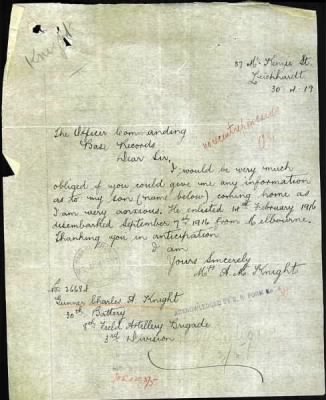 Knight
37 McKenzie St.
Leichhardt
30.4.19
The Officer Commanding
Base Records
Dear Sir,
I would be very much
obliged if you could give me any information
as to my son (name below) coming home as
I am very anxious. He enlisted 14th February 1916
disembarked September 7th 1916 from Melbourne.
Thanking you in anticipation
I am
Yours Sincerely
Mrs A. M. Knight
Gunner Charles A Knight
30th Battery
8th Field Artillery Brigade
3rd Division
ACKNOWLEDGED